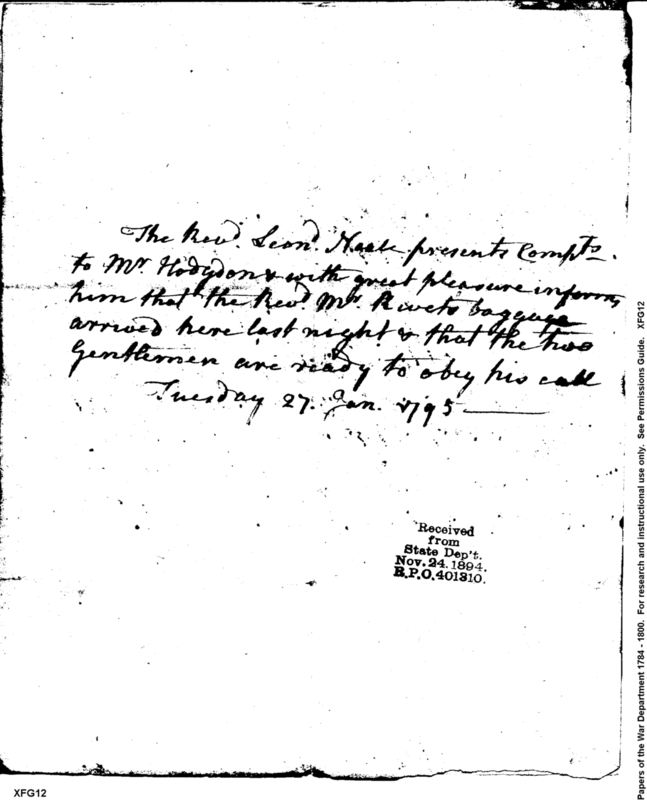 The Revd. Leond. Neale presents Compts.
to Mr. Hodgdon & with great pleasure informs
him that the Revd. Mr. Rivets baggage
arrived here last night & that the two
Gentlemen are ready to obey his call
Tuesday 27. Jan. 1795
Received
from
State Dep't.
Nov. 24. 1894.
R.P.O. 401310.
XFG12
Papers of the War Department 1784 - 1800. For research and instructional use only. See Permissions Guide. XFG12